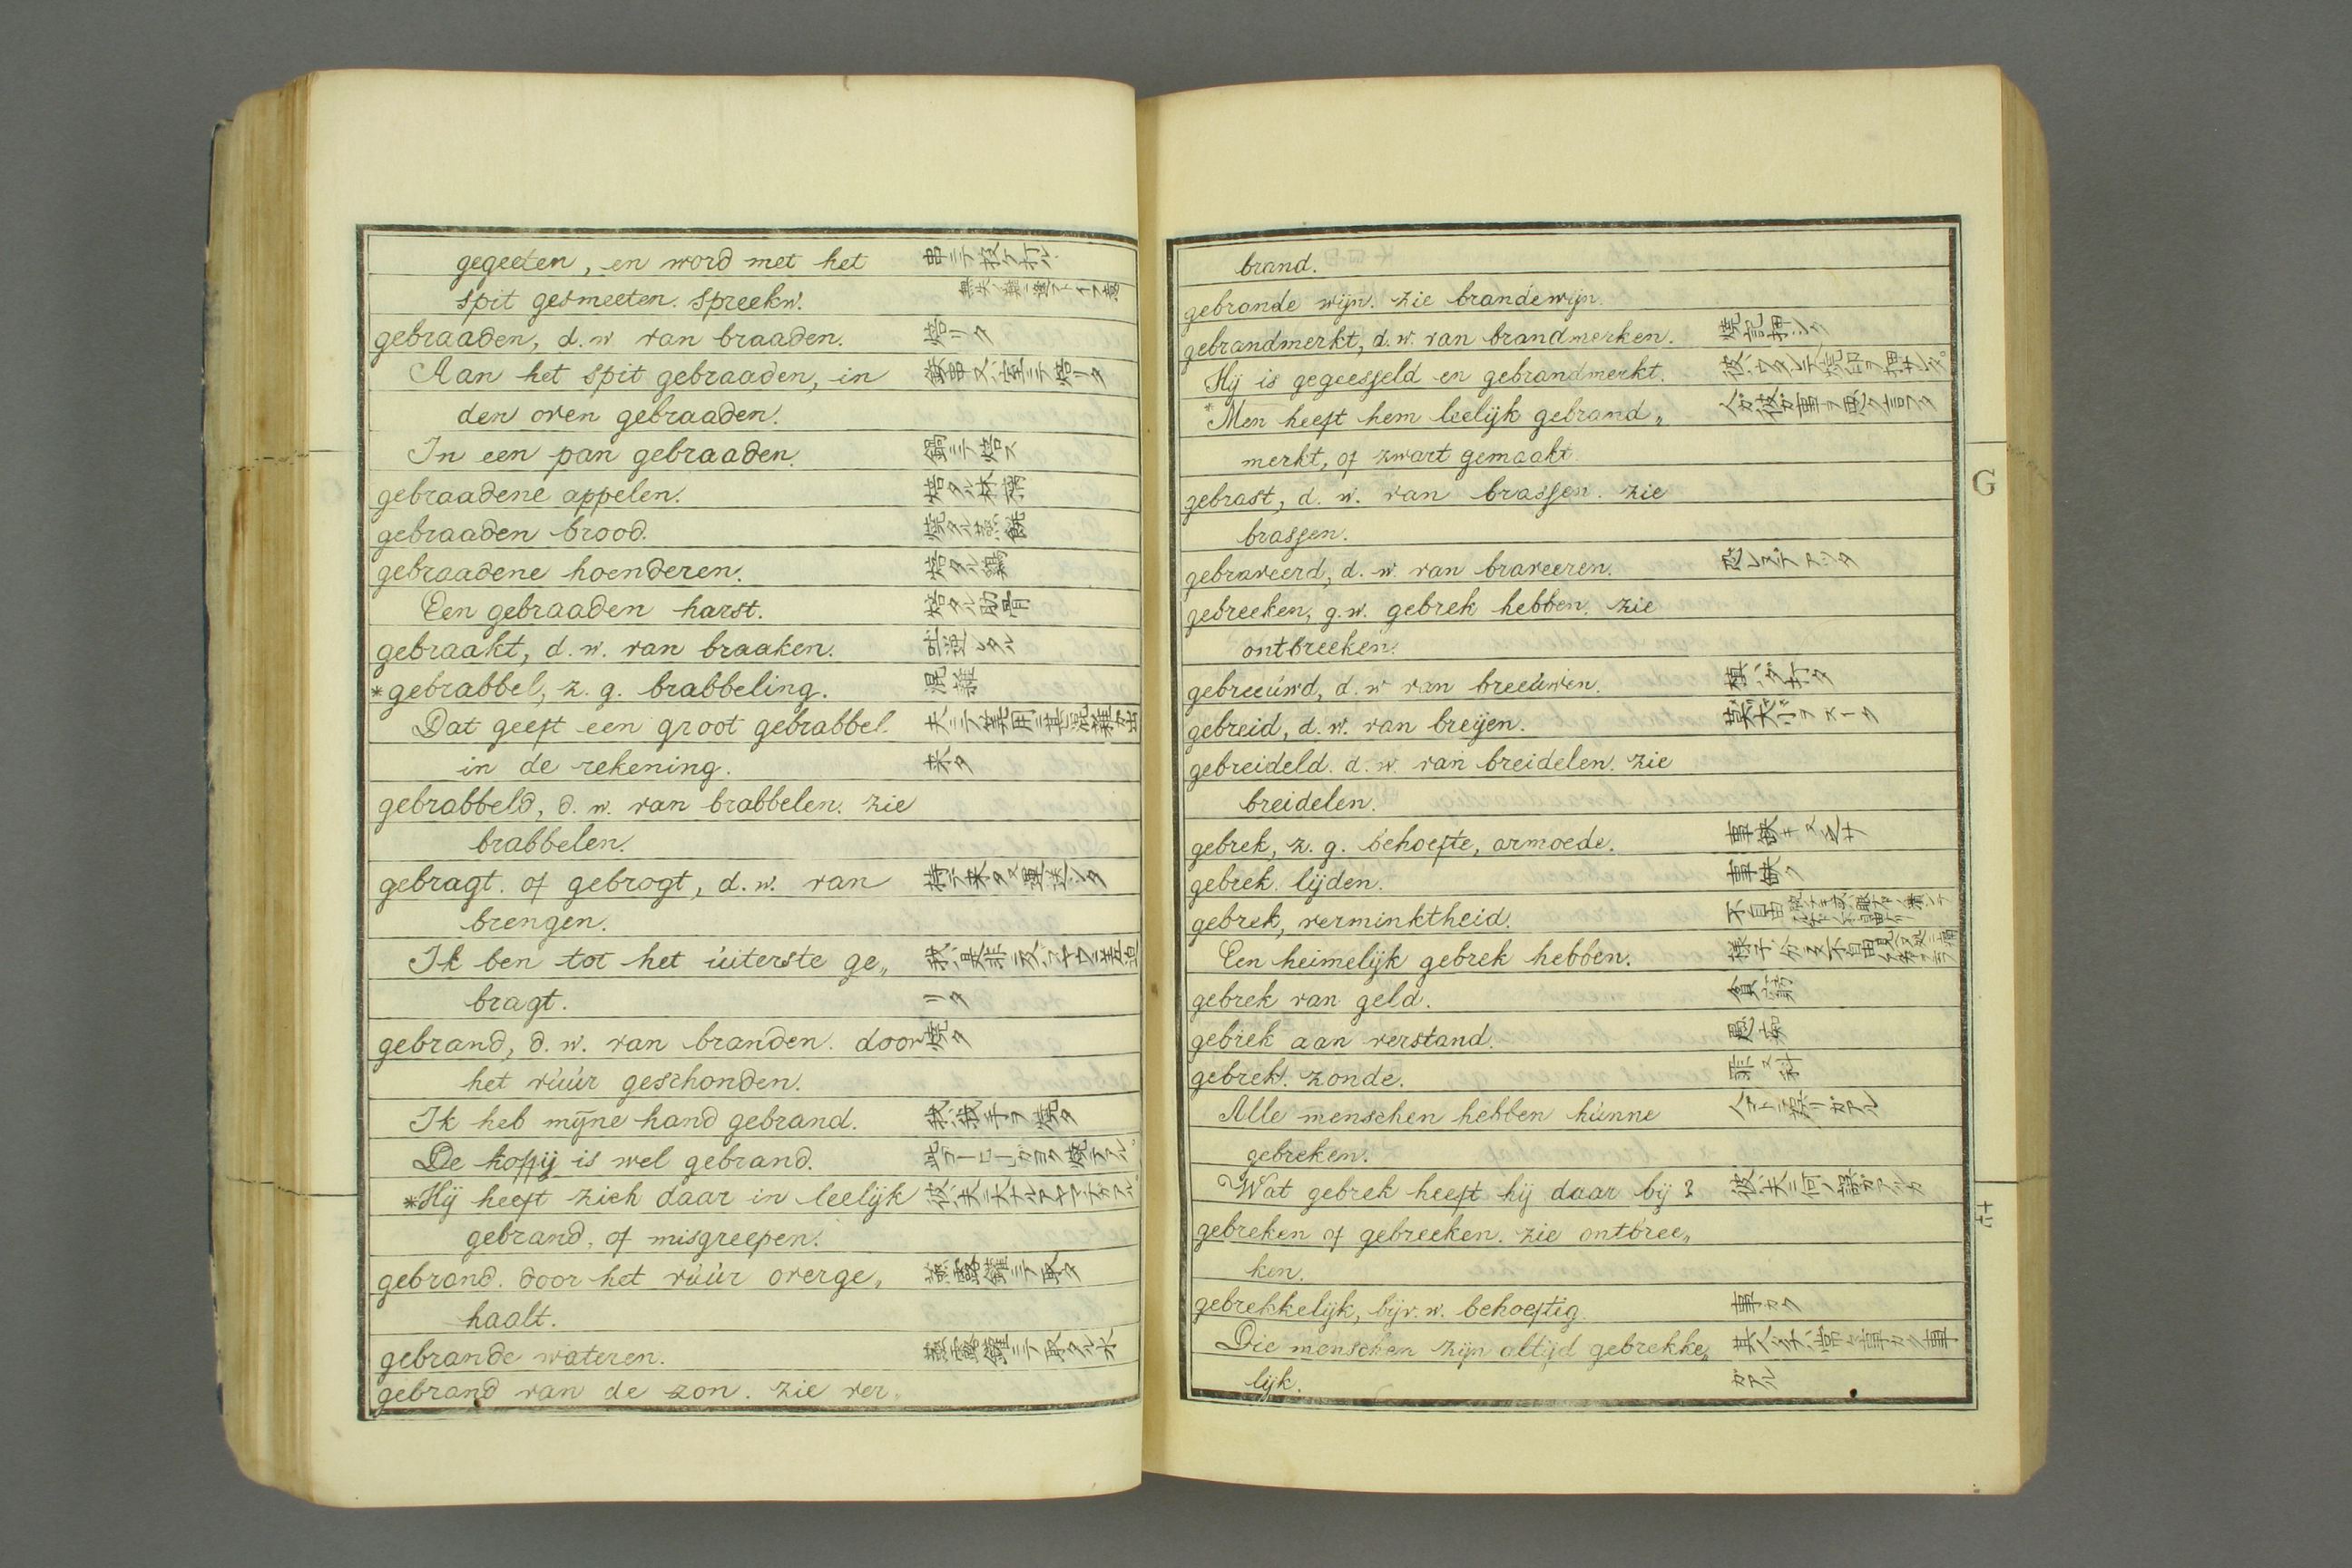 gegeeten, en word met het 串ニテ投ケ打ル
spit gesmeeten. spreekw.
gebraaden, d. w. van braaden. 焙リタ
Aan het spit gebraaden, in
den oven gebraaden.
In een pan gebraaden. 鍋ニテ焙ス
gebraadene appelen. 焙タル林檎
gebraaden brood. 焼タル蒸餅
gebraadene hoenderen. 焙タル鶏
Een gebraaden harst. 焙タル肋骨
gebraakt, d. w. van braaken. 吐逆シタル
*gebrabbel, z. g. brabbeling. 混雑
Dat geeft een groot gebrabbel 夫ニテ算用ニ甚混雑カ出
in de rekening. 来タ
gebrabbeld, d. w. van brabbelen. zie
brabbelen.
gebragt. of gebrogt, d. w. van 持テ来タ又運送シタ
brengen.
Ik ben tot het úiterste ge„
bragt. リタ
gebrand, d. w. van branden. door 焼タ
het vúúr geschonden.
Ik heb mijne hand gebrand. 我ハ我手ヲ焼タ
De koffij is wel gebrand. 此コーヒーガヨク焼テアル。
*Hij heeft zich daar in leelijk
gebrand, of misgreepen.
gebrand. door het vúúr overge„ 蒸露鑵ニテ取タ
haalt.
gebrande wateren. 蒸露鑵ニテ取タル水
gebrand van de zon. zie ver„
brand.
gebrande wijn. zie brandewijn.
gebrandmerkt, d. w. van brandmerken. 焼記押シタ
Hij is gegeesseld en gebrandmerkt.
*Men heeft hem leelijk gebrand„ 人ガ彼ガ事ヲ悪ク言フタ
merkt, of zwart gemaakt.
gebrast, d. w. van brassen. zie
brassen.
gebraveerd, d. w. van braveeren. 恐レズデアツタ
gebreeken, g. w. gebrek hebben. zie
ontbreeken.
gebreeúwd, d. w van breeúwen.
gebreid, d. w. van breijen.
gebreideld. d. w. van breidelen. zie
breidelen.
gebrek, z. g. behoefte, armoede. 事缺キ又乏サ
gebrek. lijden. 事缺ク
gebrek, verminktheid. 不自由
Een heimelijk gebrek hebben.
gebrek van geld. 貧窮
gebrek aan verstand. 愚痴
gebrek. zonde. 罪又科
Alle menschen hebben húnne
gebreken.
Wat gebrek heeft hij daar bij? 彼ハ夫ニ何ノ罪ガアルカ
gebreken of gebreeken. zie ontbree„
ken.
gebrekkelijk, bijv. w. behoeftig. 事カク
Die menschen zijn altijd gebrekke„ 其人々ハ常ニ事カク事
lijk. ガアル
G